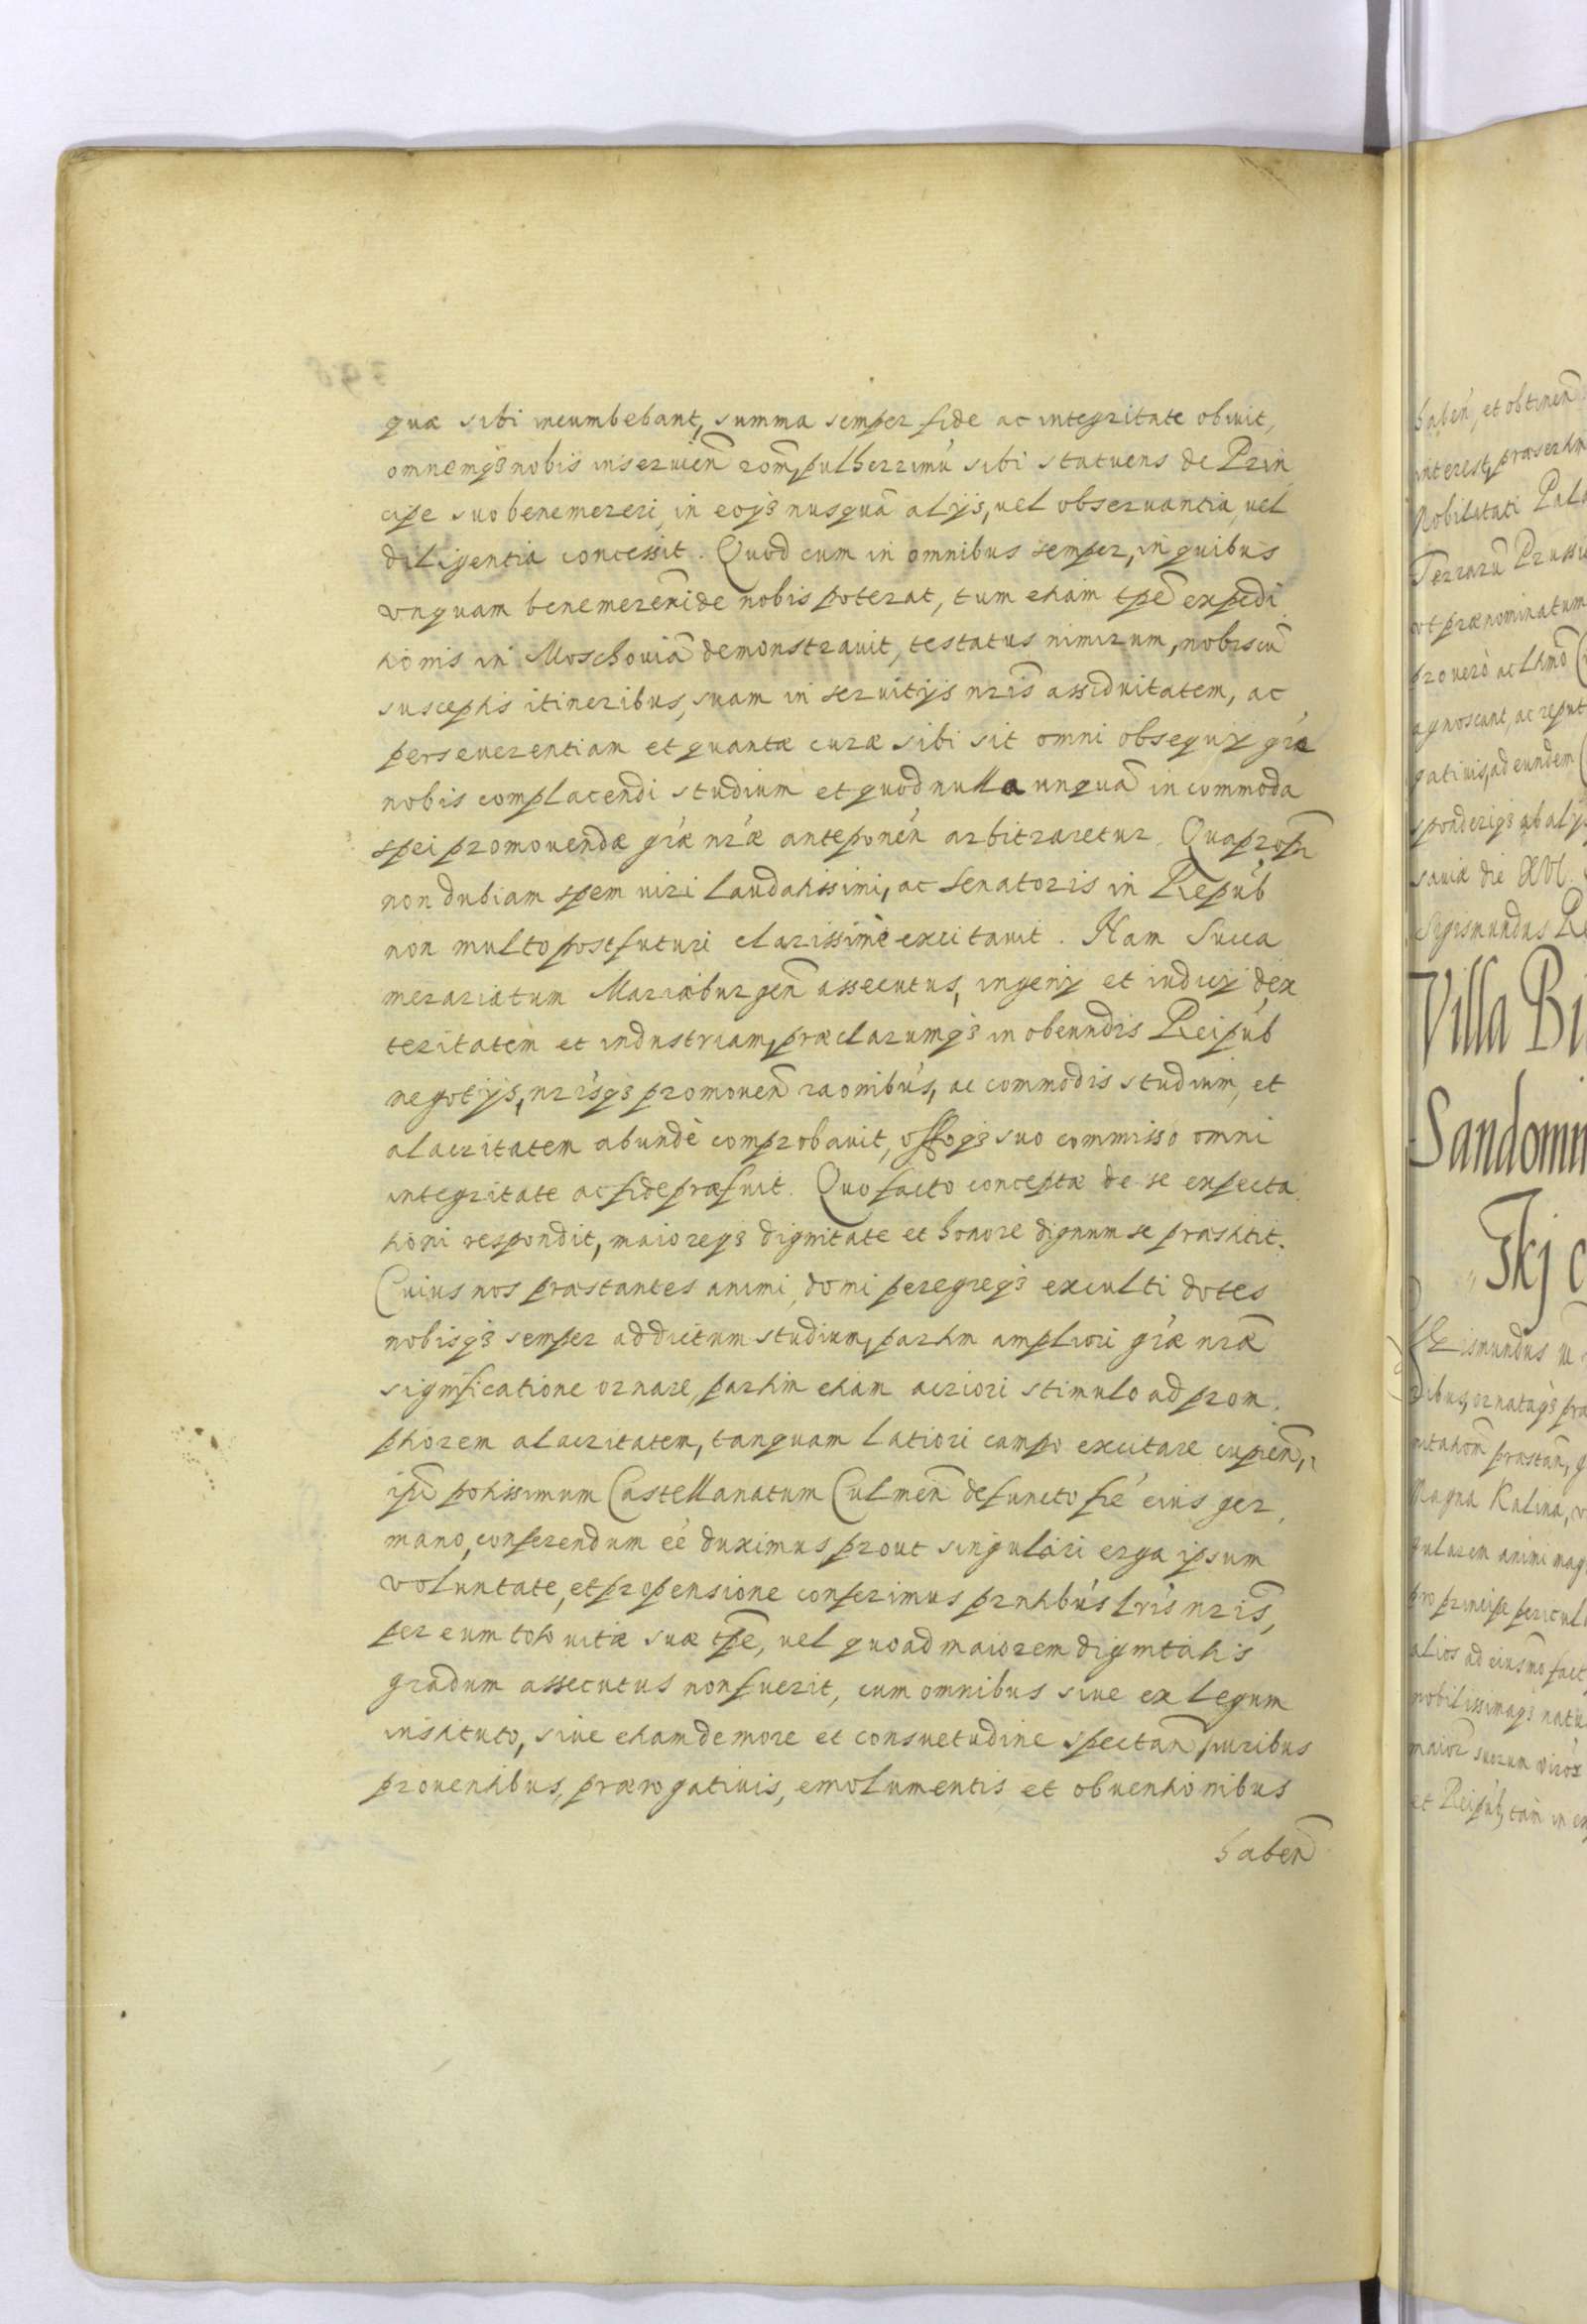 quæ sibi incumbebant, summa semper fide ac integritate obiuit,
omnemq3 nobis inseruien̄ rom̄, pulherrimū sibi statuens de Prin
cipe suo benemereri, in eoq3 nusquā alijs, uel obseruantia, uel
diligentia concessit. Quod cum in omnibus semper, in quibus
vnquam benemereri de nobis poterat, tum etiam tpē expedi
tionis in Moschouiā demonstrauit, testatus nimirum, nobiscū
susceptis itineribus, suam in seruitijs nr̄is assiduitatem, ac
perseuerentiam et quantæ curæ sibi sit omni obsequij gr̄a
nobis complacendi studium et quod nulla unquā incommoda
spei promouendæ gr̄æ nr̄æ anteponen̄ arbitraretur. Quapropr̄
non dubiam spem uiri laudatissimi, ac Senatoris in Repub̄
non multo post futuri clarissimè excitauit. Nam Succa
merariatum Mariæburgen̄ assecutus, ingenij et iudicij dex
teritatem et industriam, præclarumq3 in obeundis Reipub̄
negotijs, nr̄isq3 promouen̄ raōnibus, ac commodis studium, et
alacritatem abundè comprobauit, offoq3 suo commisso omni
integritate ac fide præfuit. Quo facto conceptæ de se expecta
tioni respondit, maioreq3 dignitate et honore dignum se præstitit.
Cuius nos præstantes animi, domi peregreq3 exculti dotes
nobisq3 semper addictum studium, partim ampliori gr̄æ nr̄æ
significatione ornare, partim etiam acriori stimulo ad prom
ptiorem alacritatem, tanquam latiori campo excitare cupien̄,
ipī potissimum Castellanatum Culmen̄ defuncto frē eius ger
mano, conferendum eē duximus prout singulari erga ipsum
voluntate, et propensione conferimus pr̄ntibus lrīs nr̄is,
per eum toto uitæ suæ tpē, uel quoad maiorem dignitatis
gradum assecutus non fuerit, cum omnibus siue ex legum
instituto, siue etiam de more et consuetudine spectan̄ juribus
prouentibus, prærogatiuis, emolumentis et obuentionibus
haben̄
haben̄, et obtinen̄
interest, præsertim
Nobilitati Pala
Terrarū Prussi
vt prænominatum
pro vero ac lt̄imō
agnoscant, ac reput
gatiuis, ad eundem
sponderiq3 ab alijs
sauiæ die XVI
Sigismundus Re
Villa Bi
Sandomi
Skj c
Sigismundus
ribus, ornataq3 pra
Magna Kalina,
gularem animi mag
pro principe pericul
alios ad eiusmō fact
nobilissimaq3 natu
maior̄ suorum
et Reipub̄, tam in ex